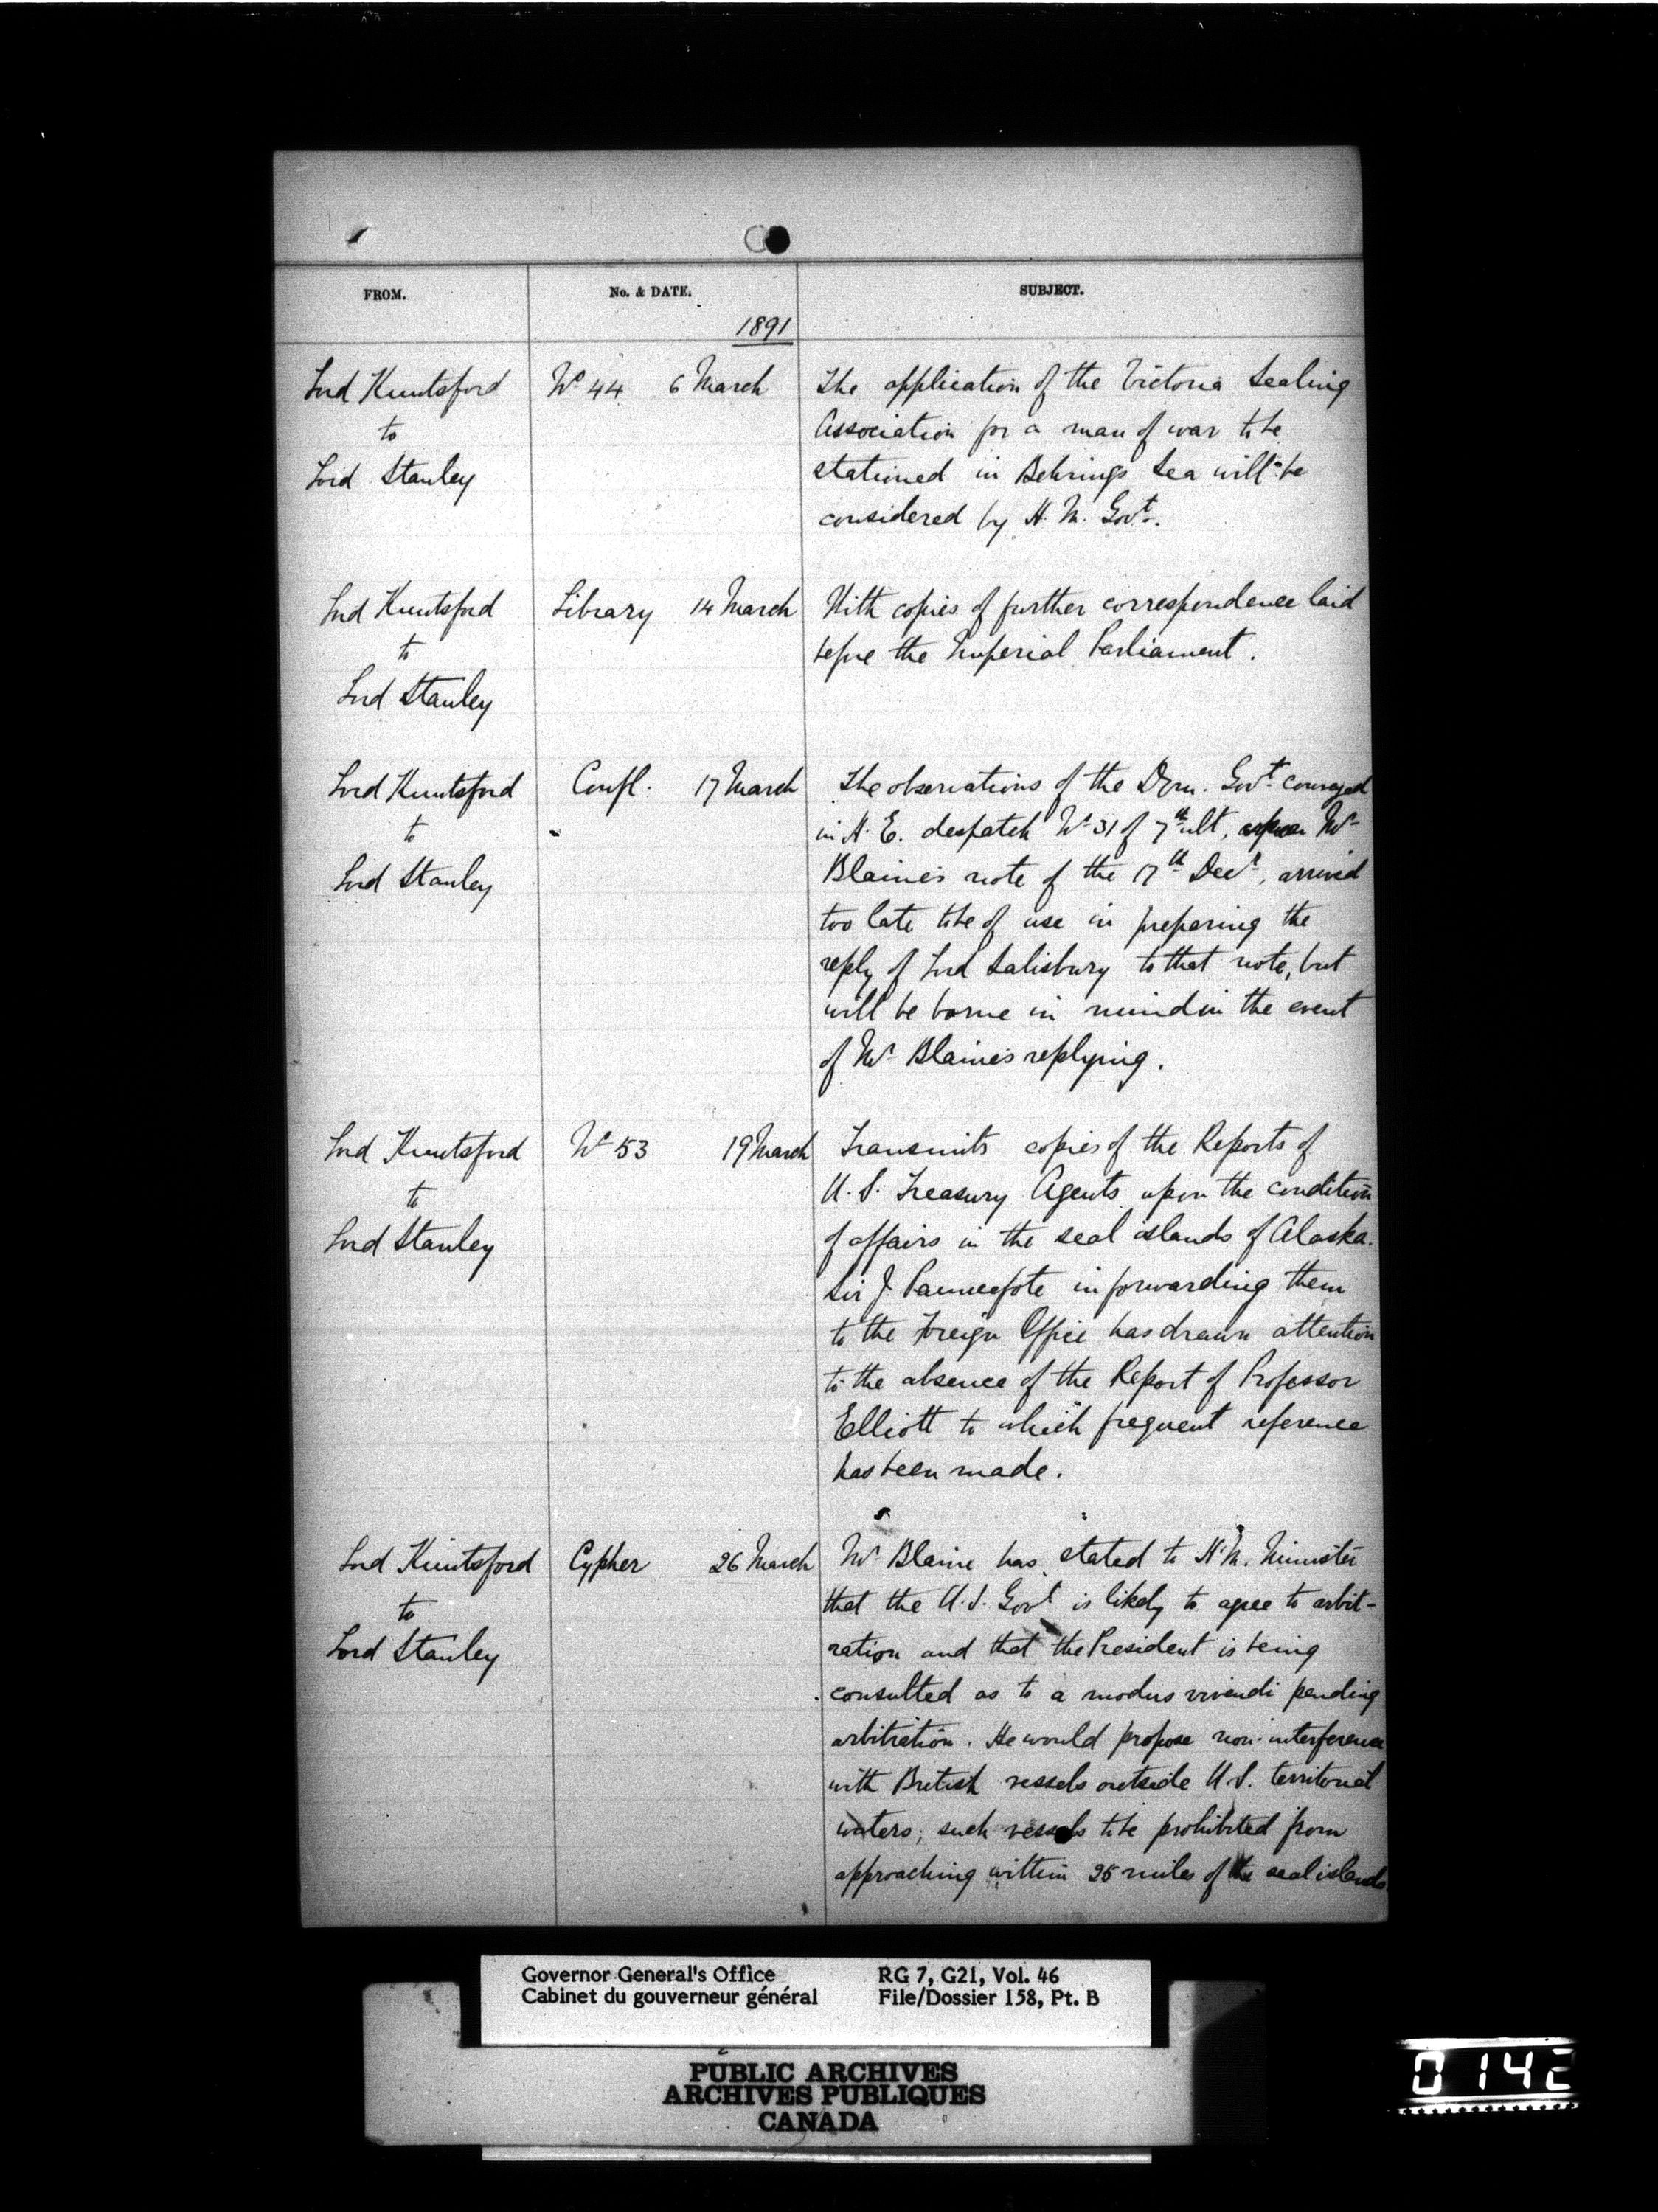 FROM. No. & DATE. SUBJECT.
1891
Lord Knutsford No 44 6 March The application of the Victoria Sealing
to Association for a man of war to be
Lord Stanley stationed in Behrings Sea will be
considered by H. M. Govt.
Lord Knutsford Library 14 March With copies of further correspondence laid
to before the Imperial Parliament.
Lord Stanley
Lord Knutsford Confl. 17 March The observations of the Dom. Govt. conveyed
to in H. E. despatch No 31 of 7th ult, upon Mr
Lord Stanley Blaine's note of the 17th Decr, arrived
too late to be of use in preparing the
reply of Lord Salisbury to that note, but
will be borne in mind in the event
of Mr Blaine's replying.
Lord Knutsford No 53 19 March Transmits copies of the Reports of
to U. S. Treasury Agents upon the condition
Lord Stanley of affairs in the seal islands of Alaska.
Sir J. Pauncefote in forwarding them
to the Foreign Office has drawn attention
to the absence of the Report of Professor
Elliott to which frequent reference
has been made.
Lord Knutsford Cypher 26 March Mr Blaine has stated to H. M. Minister
to that the U. S. Govt is likely to agree to arbit-
Lord Stanley ration and that the President is being
consulted as to a modus vivendi pending
arbitration. He would propose non-interference
with British vessels outside U. S. territorial
waters; such vessels to be prohibited from
approaching within 25 miles of the seal islands.
Governor General's Office RG 7, G21, Vol. 46
Cabinet du gouverneur général File/Dossier 158, Pt. B
PUBLIC ARCHIVES
ARCHIVES PUBLIQUES
CANADA
0142